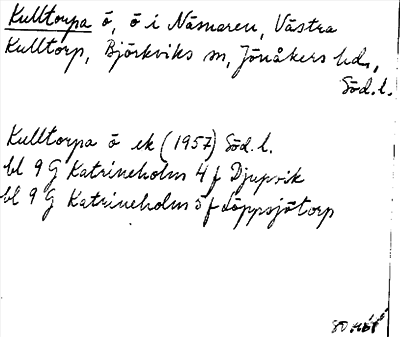 Kulltorpa ö, ö i Näsnaren, Västra
Kulltorp, Björkviks sn, Jönåkers hd.,
Söd. l.
Kulltorpa ö ek (1957) Söd. l.
bl 9 G Katrineholm 4 f Djupvik
bl 9 G Katrineholm 5 f Löppsjötorp
80